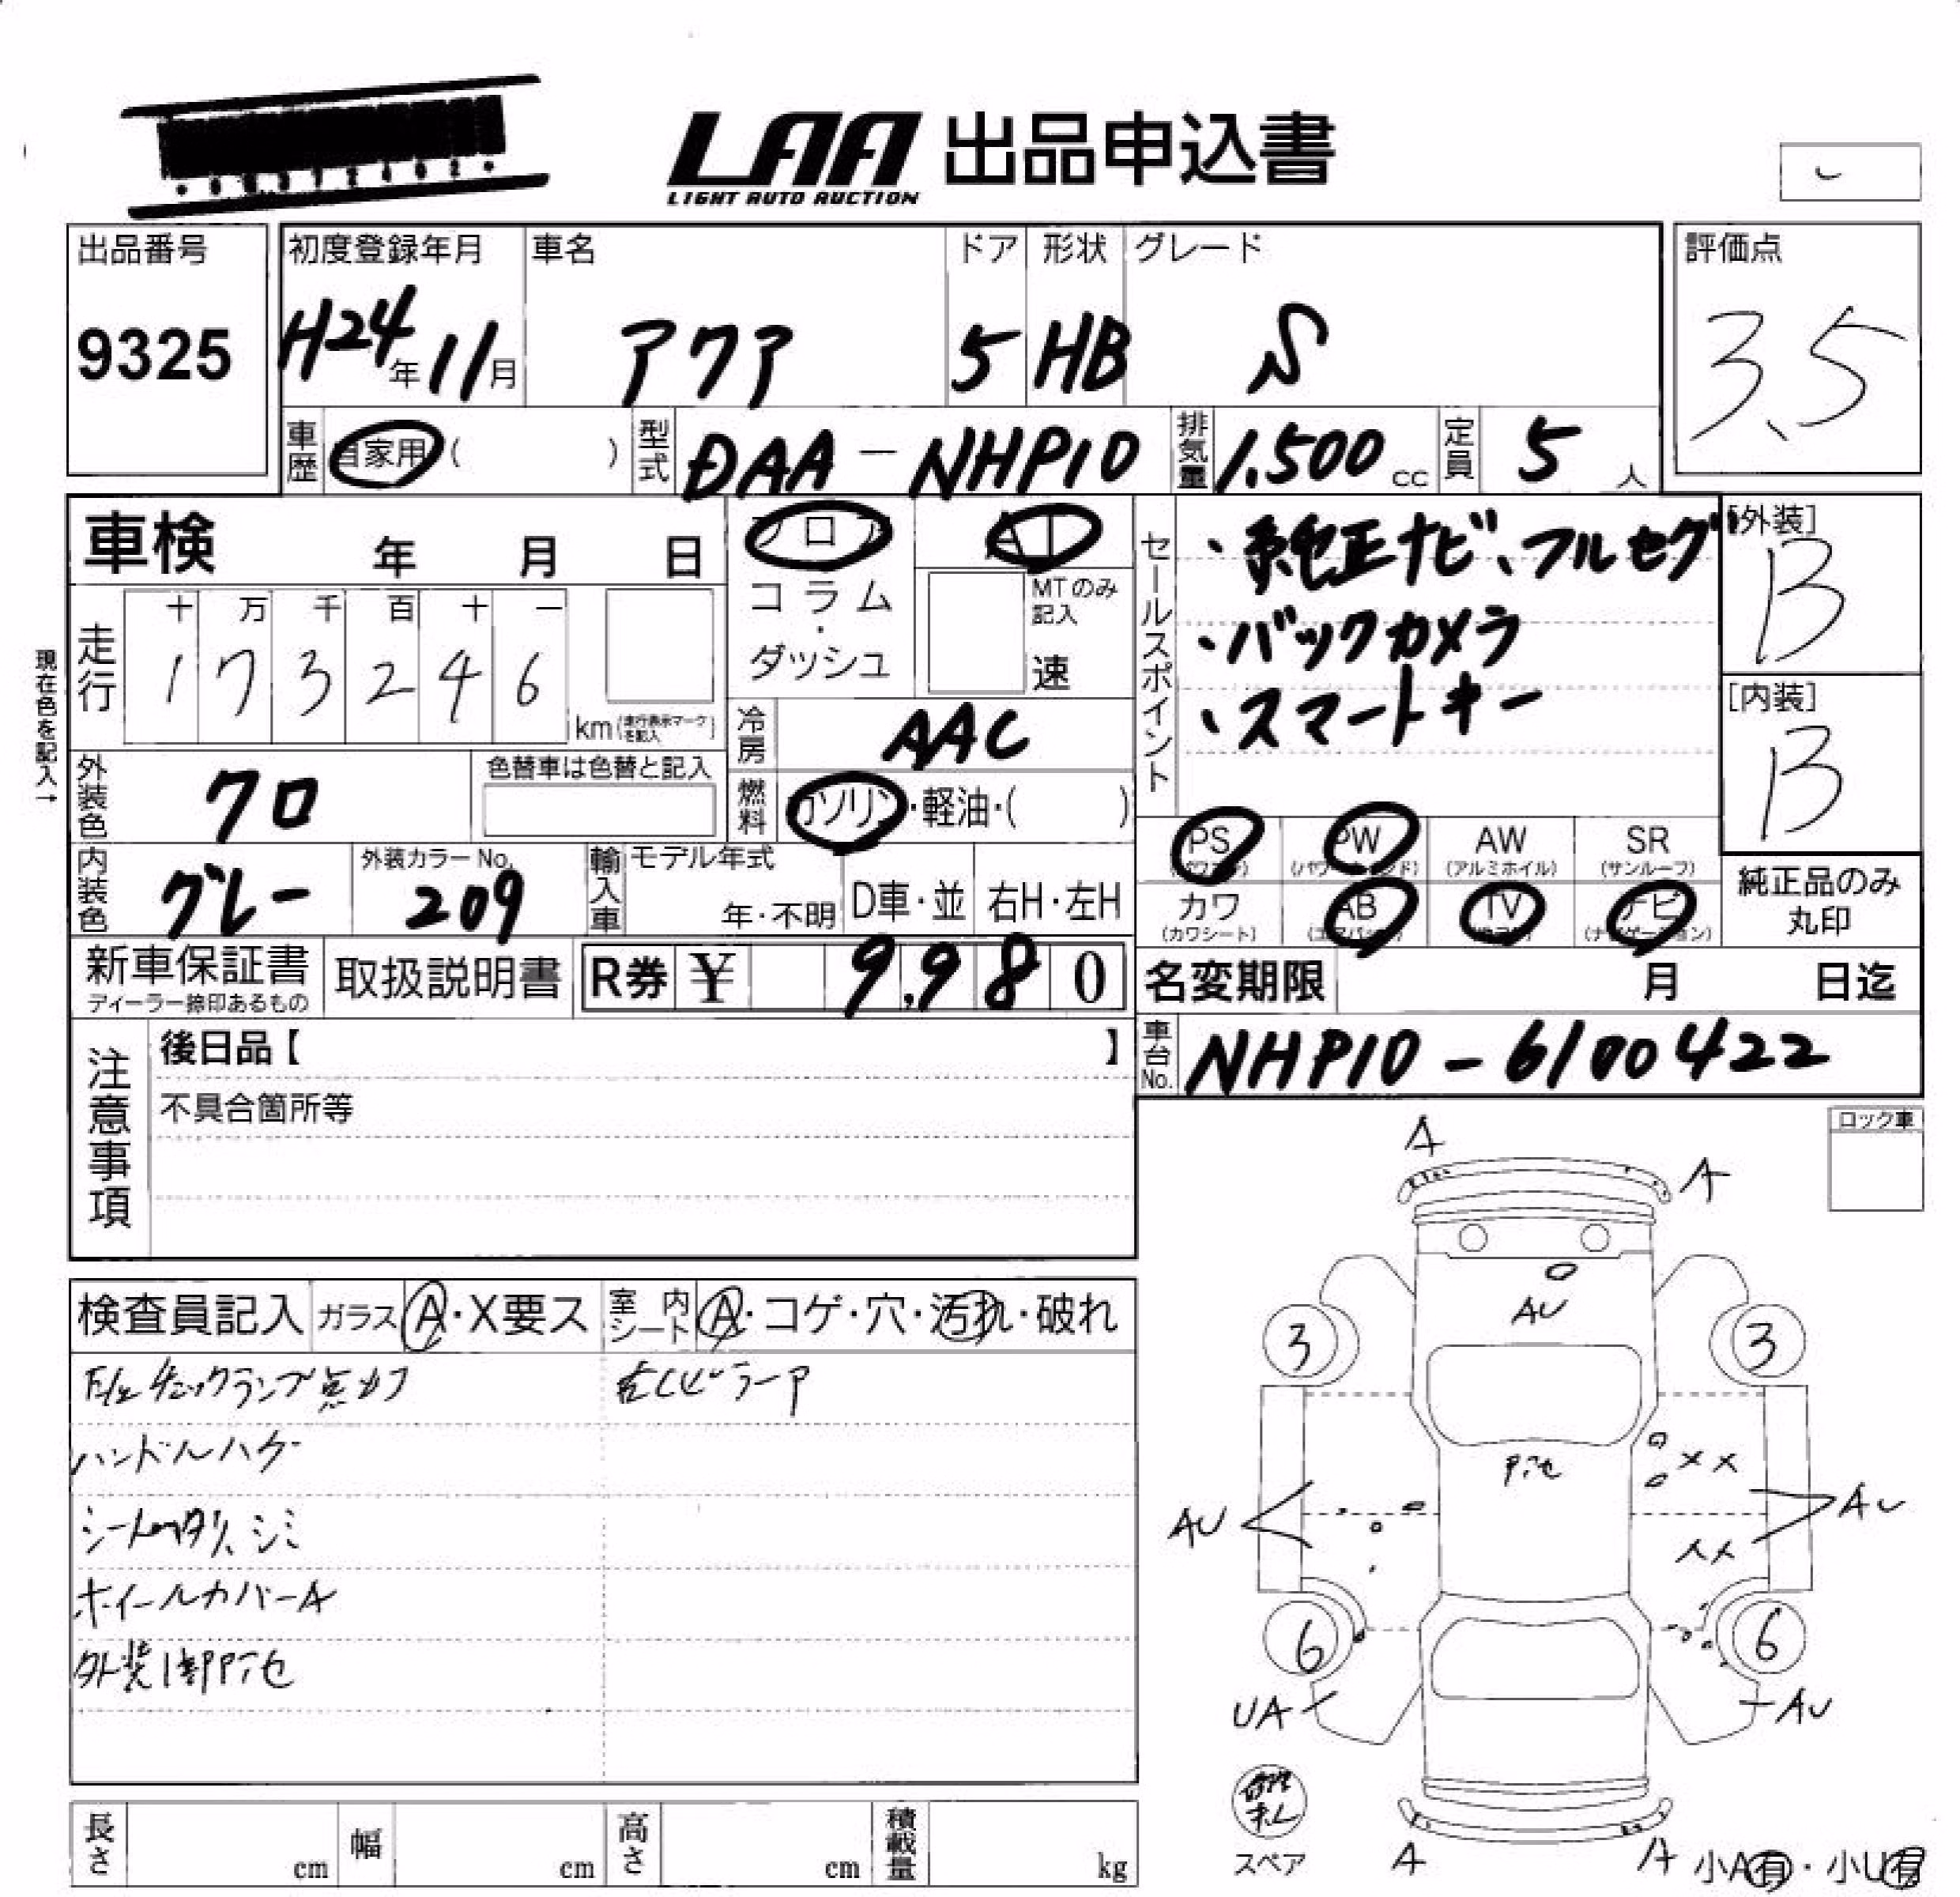 LAA 出品申込書
LIGHT AUTO AUCTION
出品番号
9325
初度登録年月
H24年11月
車名
アクア
ドア
5
形状
HB
グレード
S
評価点
3.5
車歴
自家用 ( )
型式
DAA-NHP10
排気量
1.500 cc
定員
5人
車検 年 月 日
フロア
コラム・ダッシュ
AT
MTのみ記入
速
セールスポイント
・純正ナビ、フルセグ
・バックカメラ
・スマートキー
[外装]
B
[内装]
B
現在色を記入→
走行
十 万 千 百 十 一
1 7 3 2 4 6
km(走行表示マークを記入)
冷房
AAC
外装色
クロ
色替車は色替と記入
燃料
ガソリン・軽油・( )
PS
AW
(アルミホイル)
PW
SR
(サンルーフ)
カワ
(カワシート)
AB
TV
ナビ
純正品のみ丸印
内装色
グレー
外装カラーNo.
209
輸入車
モデル年式
年・不明
D車・並
右H・左H
新車保証書
ディーラー捺印あるもの
取扱説明書
R券 ¥ 9,980
名変期限 月 日迄
車台No.
NHP10-6100422
注意事項
後日品【 】
不具合箇所等
ロック車
検査員記入
ガラス A・X要ス
室内シート A・コゲ・穴・汚れ・破れ
E/gチェックランプ点灯
右Cピラーア
ハンドルハゲ
シートヘタリ、シミ
ホイールカバーA
外装1部ア色
A
A
AU
3
3
ア色
AU
AU
6
6
UA
AU
スペア
A
A
小A有・小U有
長さ cm
幅 cm
高さ cm
積載量 kg